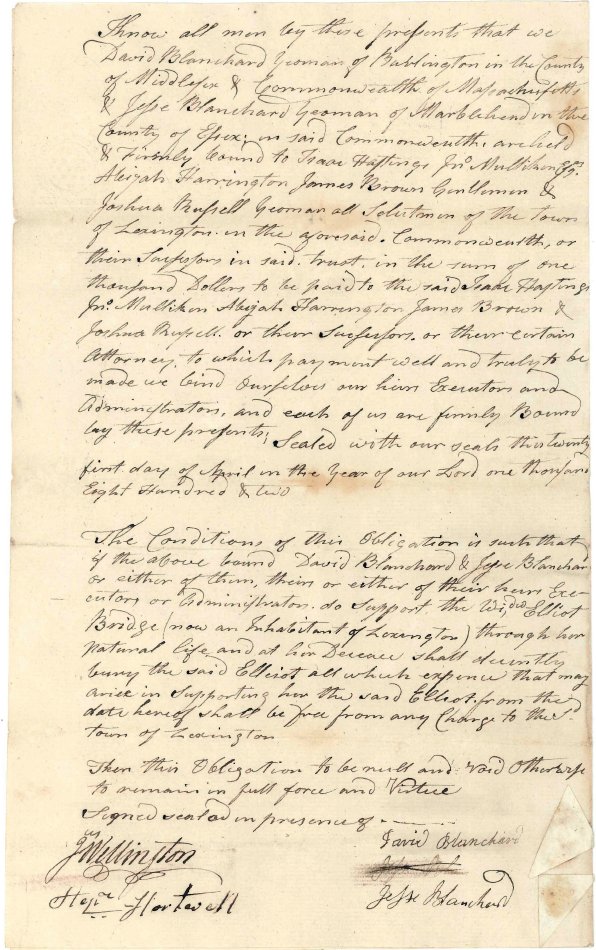 Know all men by these presents that we
David Blanchard Yeoman of Burlington in the County
of Middlesex & Commonwealth of Massachusetts
& Jesse Blanchard Yeoman of Marblehead in the
County of Essex; in said Commonwealth. are held
& Firmly bound to Isaac Hastings Jno. Mulliken Esqr.
Abijah Harrington James Brown Gentlemen &
Joshua Russell Yeoman all Selectmen of the Town
of Lexington. in the aforesaid. Commonwealth, or
their Successors in said. trust, in the sum of one
thousand Dollers to be paid to the said Isaac Hastings
Jno. Mulliken Abijah Harrington James Brown &
Joshua Russell. or their Successors. or their certain
Attorney, to which payment well and truly to be
made we bind Ourselves our heirs Executors and
Administrators, and each of us are firmly Bound
by these presents, Sealed with our seals this twenty
first day of April in the Year of our Lord one thousand
Eight Hundred & two
The Conditions of this Obligation is such that
if the above bound David Blanchard & Jesse Blanchard
or either of them, theirs or either of their heirs Exe-
cutors or Administrators. do Support the Widw. Elliot
Bridge (now an Inhabitant of Lexington) through her
natural life, and at her Decease shall decently
bury the said Elliot all which expence that may
arise in Supporting her the said Elliot. from the
date hereof shall be free from any Charge to the sd.
town of Lexington
Then this Obligation to be null and Void Otherwise
to remain in full force and Virtue
Signed sealed in presence of
Wellington
David Blanchard
Hartwell
Jesse Blanchard